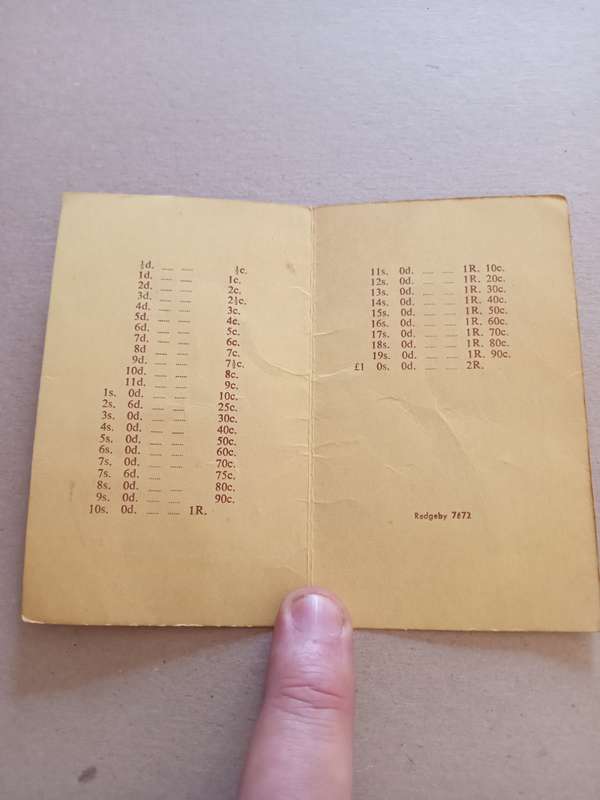 ½d. ...... ...... ½c.
1d. ...... ...... 1c.
2d. ...... ...... 2c.
3d. ...... ...... 2½c.
4d. ...... ...... 3c.
5d. ...... ...... 4c.
6d. ...... ...... 5c.
7d. ...... ...... 6c.
8d ...... ...... 7c.
9d. ...... ...... 7½c.
10d. ...... ...... 8c.
11d. ...... ...... 9c.
1s. 0d. ...... ...... 10c.
2s. 6d. ...... ...... 25c.
3s. 0d. ...... ...... 30c.
4s. 0d. ...... ...... 40c.
5s. 0d. ...... ...... 50c.
6s. 0d. ...... ...... 60c.
7s. 0d. ...... ...... 70c.
7s. 6d. ...... 75c.
8s. 0d. ...... ...... 80c.
9s. 0d. ...... ...... 90c.
10s. 0d. ...... ...... 1R.
11s. 0d. ...... ...... 1R. 10c.
12s. 0d. ...... ...... 1R. 20c.
13s. 0d. ...... ...... 1R. 30c.
14s. 0d. ...... ...... 1R. 40c.
15s. 0d. ...... ...... 1R. 50c.
16s. 0d. ...... ...... 1R. 60c.
17s. 0d. ...... ...... 1R. 70c.
18s. 0d. ...... ...... 1R. 80c.
19s. 0d. ...... ...... 1R. 90c.
£1 0s. 0d. ...... ...... 2R.
Radgeby